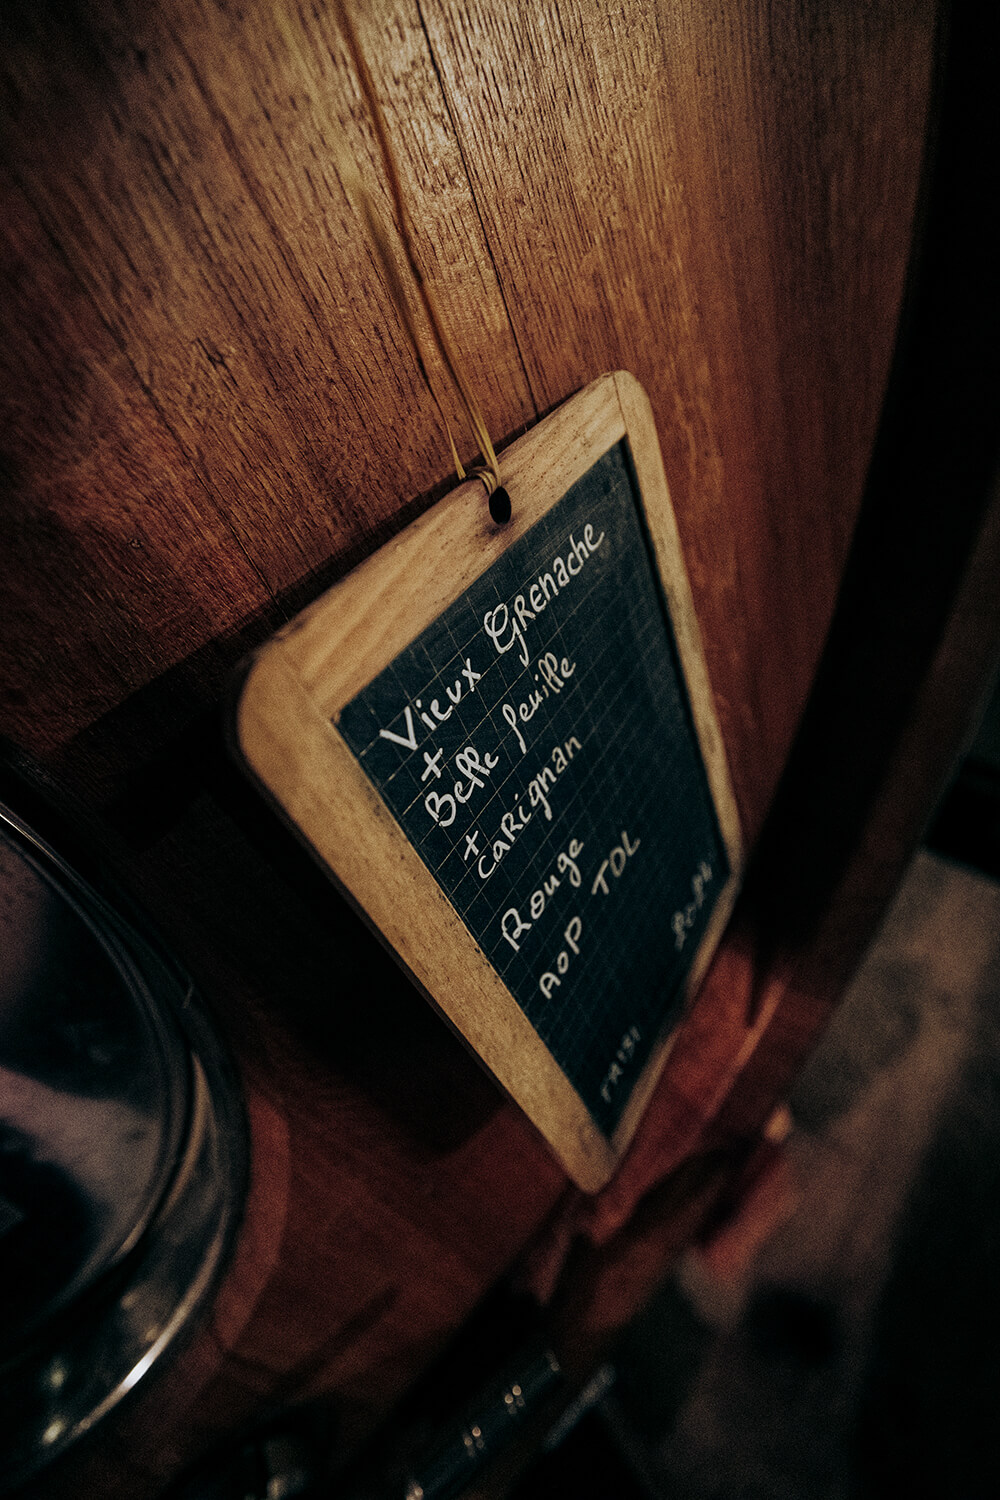 Vieux Grenache
+
Belle feuille
+ carignan
Rouge
AOP TDL